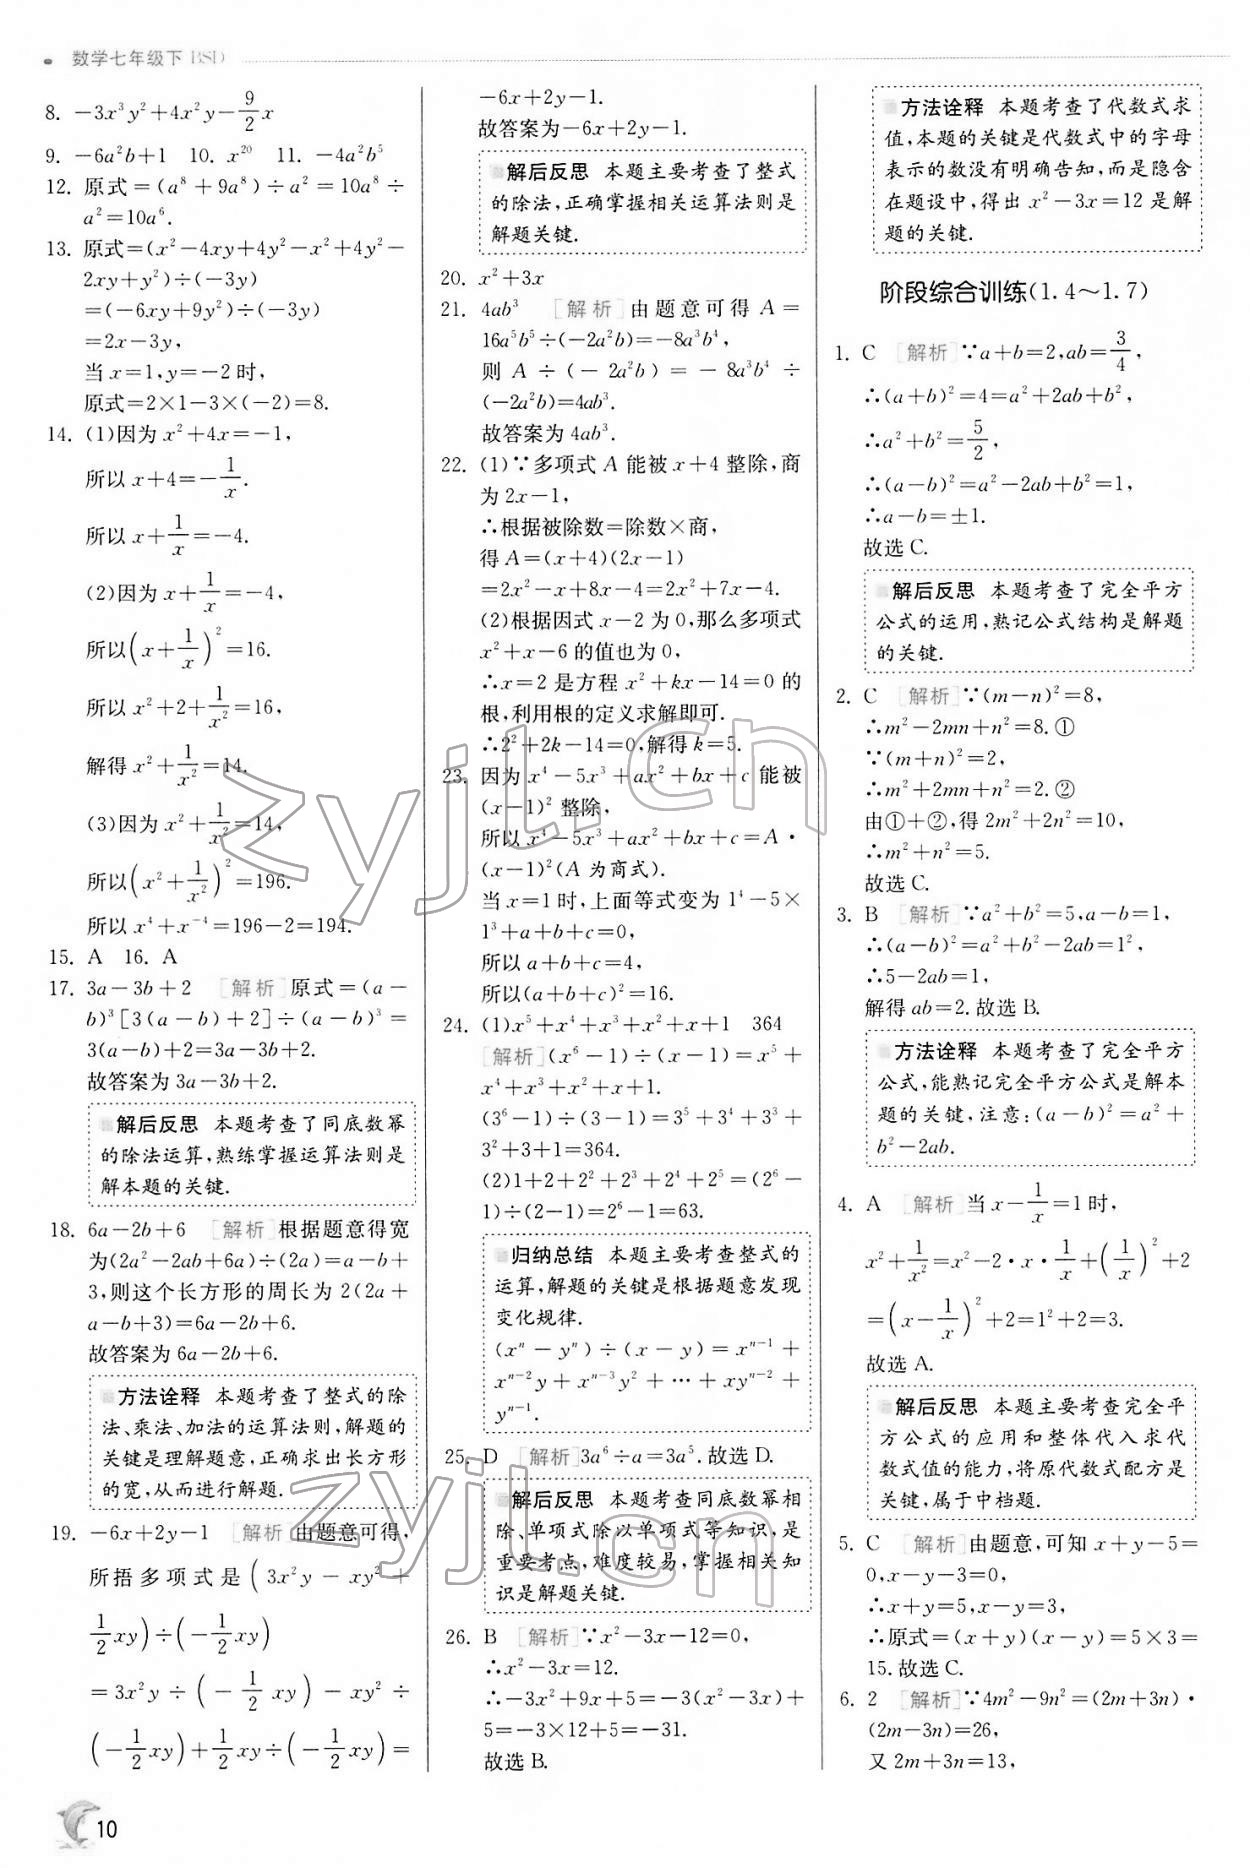 数学七年级下(BSD)
8. −3x³y²+4x²y−9/2x
9. −6a²b+1 10. x²⁰ 11. −4a²b⁵
12. 原式=(a⁸+9a⁸)÷a²=10a⁸÷
a²=10a⁶.
13. 原式=(x²−4xy+4y²−x²+4y²−
2xy+y²)÷(−3y)
=(−6xy+9y²)÷(−3y)
=2x−3y,
当x=1,y=−2时,
原式=2×1−3×(−2)=8.
14. (1)因为x²+4x=−1,
所以x+4=−1/x.
所以x+1/x=−4.
(2)因为x+1/x=−4,
所以(x+1/x)²=16.
所以x²+2+1/x²=16,
解得x²+1/x²=14.
(3)因为x²+1/x²=14,
所以(x²+1/x²)²=196.
所以x⁴+x⁻⁴=196−2=194.
15. A 16. A
17. 3a−3b+2 [解析]原式=(a−
b)³[3(a−b)+2]÷(a−b)³=
3(a−b)+2=3a−3b+2.
故答案为3a−3b+2.
解后反思 本题考查了同底数幂
的除法运算,熟练掌握运算法则是
解本题的关键.
18. 6a−2b+6 [解析]根据题意得宽
为(2a²−2ab+6a)÷(2a)=a−b+
3,则这个长方形的周长为2(2a+
a−b+3)=6a−2b+6.
故答案为6a−2b+6.
方法诠释 本题考查了整式的除
法、乘法、加法的运算法则,解题的
关键是理解题意,正确求出长方形
的宽,从而进行解题.
19. −6x+2y−1 [解析]由题意可得,
所捂多项式是(3x²y−xy²+
1/2xy)÷(−1/2xy)
=3x²y÷(−1/2xy)−xy²÷
(−1/2xy)+1/2xy÷(−1/2xy)=
−6x+2y−1.
故答案为−6x+2y−1.
解后反思 本题主要考查了整式
的除法,正确掌握相关运算法则是
解题关键.
20. x²+3x
21. 4ab³ [解析]由题意可得A=
16a⁵b⁵÷(−2a²b)=−8a³b⁴,
则A÷(−2a²b)=−8a³b⁴÷
(−2a²b)=4ab³.
故答案为4ab³.
22. (1)∵多项式A能被x+4整除,商
为2x−1,
∴根据被除数=除数×商,
得A=(x+4)(2x−1)
=2x²−x+8x−4=2x²+7x−4.
(2)根据因式x−2为0,那么多项式
x²+x−6的值也为0,
∴x=2是方程x²+kx−14=0的
根,利用根的定义求解即可.
∴2²+2k−14=0,解得k=5.
23. 因为x⁴−5x³+ax²+bx+c能被
(x−1)²整除,
所以x⁴−5x³+ax²+bx+c=A·
(x−1)²(A为商式).
当x=1时,上面等式变为1⁴−5×
1³+a+b+c=0,
所以a+b+c=4,
所以(a+b+c)²=16.
24. (1)x⁵+x⁴+x³+x²+x+1 364
[解析](x⁶−1)÷(x−1)=x⁵+
x⁴+x³+x²+x+1.
(3⁶−1)÷(3−1)=3⁵+3⁴+3³+
3²+3+1=364.
(2)1+2+2²+2³+2⁴+2⁵=(2⁶−
1)÷(2−1)=2⁶−1=63.
归纳总结 本题主要考查整式的
运算,解题的关键是根据题意发现
变化规律.
(xⁿ−yⁿ)÷(x−y)=xⁿ⁻¹+
xⁿ⁻²y+xⁿ⁻³y²+…+xyⁿ⁻²+
yⁿ⁻¹.
25. D [解析]3a⁶÷a=3a⁵.故选D.
解后反思 本题考查同底数幂相
除、单项式除以单项式等知识,是
重要考点,难度较易,掌握相关知
识是解题关键.
26. B [解析]∵x²−3x−12=0,
∴x²−3x=12.
∴−3x²+9x+5=−3(x²−3x)+
5=−3×12+5=−31.
故选B.
方法诠释 本题考查了代数式求
值,本题的关键是代数式中的字母
表示的数没有明确告知,而是隐含
在题设中,得出x²−3x=12是解
题的关键.
阶段综合训练(1.4~1.7)
1. C [解析]∵a+b=2,ab=3/4,
∴(a+b)²=4=a²+2ab+b²,
∴a²+b²=5/2,
∴(a−b)²=a²−2ab+b²=1,
∴a−b=±1.
故选C.
解后反思 本题考查了完全平方
公式的运用,熟记公式结构是解题
的关键.
2. C [解析]∵(m−n)²=8,
∴m²−2mn+n²=8.①
∵(m+n)²=2,
∴m²+2mn+n²=2.②
由①+②,得2m²+2n²=10,
∴m²+n²=5.
故选C.
3. B [解析]∵a²+b²=5,a−b=1,
∴(a−b)²=a²+b²−2ab=1²,
∴5−2ab=1,
解得ab=2.故选B.
方法诠释 本题考查了完全平方
公式,能熟记完全平方公式是解本
题的关键,注意:(a−b)²=a²+
b²−2ab.
4. A [解析]当x−1/x=1时,
x²+1/x²=x²−2·x·1/x+(1/x)²+2
=(x−1/x)²+2=1²+2=3.
故选A.
解后反思 本题主要考查完全平
方公式的应用和整体代入求代
数式值的能力,将原代数式配方是
关键,属于中档题.
5. C [解析]由题意,可知x+y−5=
0,x−y−3=0,
∴x+y=5,x−y=3,
∴原式=(x+y)(x−y)=5×3=
15.故选C.
6. 2 [解析]∵4m²−9n²=(2m+3n)·
(2m−3n)=26,
又2m+3n=13,
10
zyjl.cn
zyjl.cn